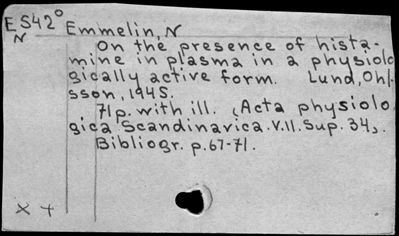 ES42° Emmelin, N
N
On the presence of hista-
mine in plasma in a physiolo
gically active form. Lund, Ohl-
sson, 1945.
71p. with ill. (Acta physiolo
gica Scandinavica. V.11. Sup. 34).
Bibliogr. p. 67-71.
x +